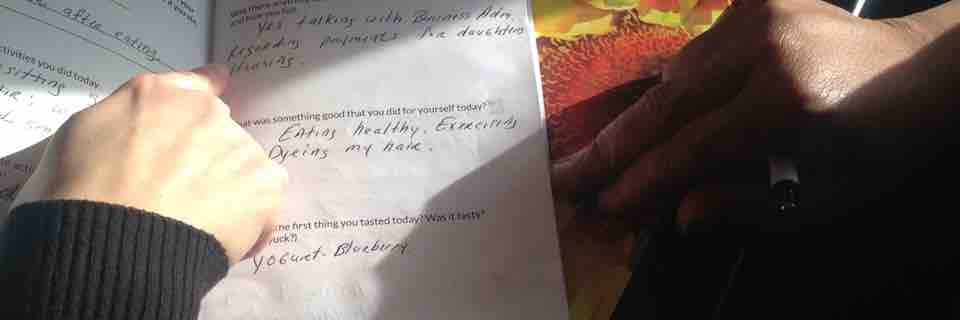 after eating
ctivities you did today
sitting
and how you felt
Yes talking with Business Adm
Regarding payments for daughters
at was something good that you did for yourself today?
Eating healthy. Exercising
Dyeing my hair.
he first thing you tasted today? Was it tasty
yuck?)
Yogurt. Blueberry